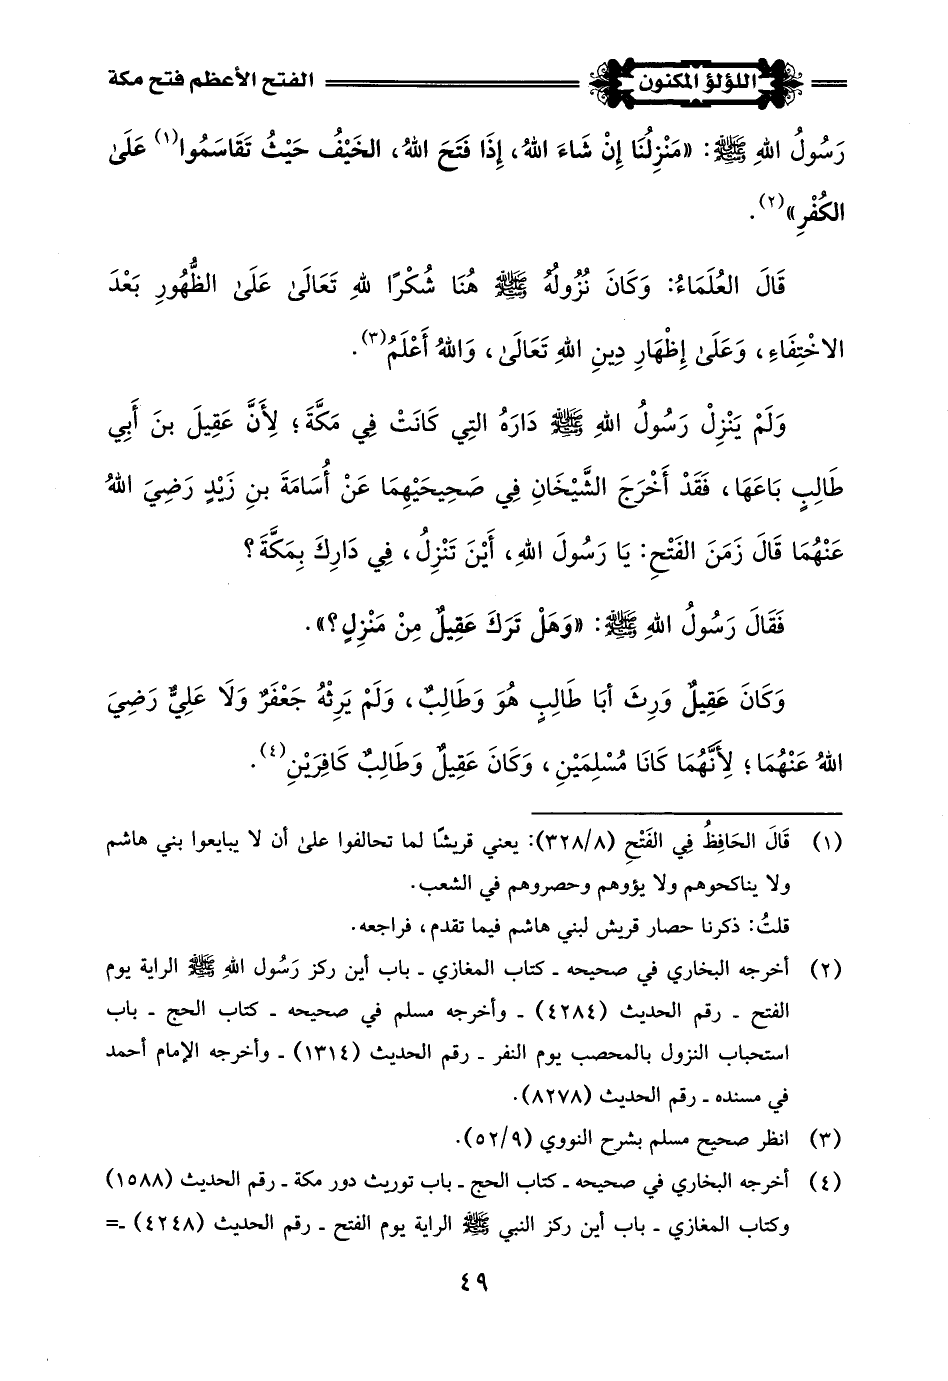 اللؤلؤ المكنون الفتح الأعظم فتح مكة
رَسُولُ اللهِ ﷺ: «مَنْزِلُنَا إِنْ شَاءَ اللهُ، إِذَا فَتَحَ اللهُ، الخَيْفُ حَيْثُ تَقَاسَمُوا(١) عَلَى
الكُفْرِ»(٢).
قَالَ العُلَمَاءُ: وَكَانَ نُزُولُهُ ﷺ هُنَا شُكْرًا للهِ تَعَالَى عَلَى الظُّهُورِ بَعْدَ
الاخْتِفَاءِ، وَعَلَى إِظْهَارِ دِينِ اللهِ تَعَالَى، وَاللهُ أَعْلَمُ(٣).
وَلَمْ يَنْزِلْ رَسُولُ اللهِ ﷺ دَارَهُ التِي كَانَتْ فِي مَكَّةَ؛ لِأَنَّ عَقِيلَ بنَ أَبِي
طَالِبٍ بَاعَهَا، فَقَدْ أَخْرَجَ الشَّيْخَانِ فِي صَحِيحَيْهِمَا عَنْ أُسَامَةَ بنِ زَيْدٍ رَضِيَ اللهُ
عَنْهُمَا قَالَ زَمَنَ الفَتْحِ: يَا رَسُولَ اللهِ، أَيْنَ تَنْزِلُ، فِي دَارِكَ بِمَكَّةَ؟
فَقَالَ رَسُولُ اللهِ ﷺ: «وَهَلْ تَرَكَ عَقِيلٌ مِنْ مَنْزِلٍ؟».
وَكَانَ عَقِيلٌ وَرِثَ أَبَا طَالِبٍ هُوَ وَطَالِبٌ، وَلَمْ يَرِثْهُ جَعْفَرٌ وَلَا عَلِيٌّ رَضِيَ
اللهُ عَنْهُمَا؛ لِأَنَّهُمَا كَانَا مُسْلِمَيْنِ، وَكَانَ عَقِيلٌ وَطَالِبٌ كَافِرَيْنِ(٤).
(١) قَالَ الحَافِظُ فِي الفَتْحِ (٣٢٨/٨): يعني قريشًا لما تحالفوا على أن لا يبايعوا بني هاشم
ولا يناكحوهم ولا يؤوهم وحصروهم في الشعب.
قلتُ: ذكرنا حصار قريش لبني هاشم فيما تقدم، فراجعه.
(٢) أخرجه البخاري في صحيحه ـ كتاب المغازي ـ باب أين ركز رَسُول اللهِ ﷺ الراية يوم
الفتح ـ رقم الحديث (٤٢٨٤) ـ وأخرجه مسلم في صحيحه ـ كتاب الحج ـ باب
استحباب النزول بالمحصب يوم النفر ـ رقم الحديث (١٣١٤) ـ وأخرجه الإمام أحمد
في مسنده ـ رقم الحديث (٨٢٧٨).
(٣) انظر صحيح مسلم بشرح النووي (٥٢/٩).
(٤) أخرجه البخاري في صحيحه ـ كتاب الحج ـ باب توريث دور مكة ـ رقم الحديث (١٥٨٨)
وكتاب المغازي ـ باب أين ركز النبي ﷺ الراية يوم الفتح ـ رقم الحديث (٤٢٤٨) ـ=
٤٩